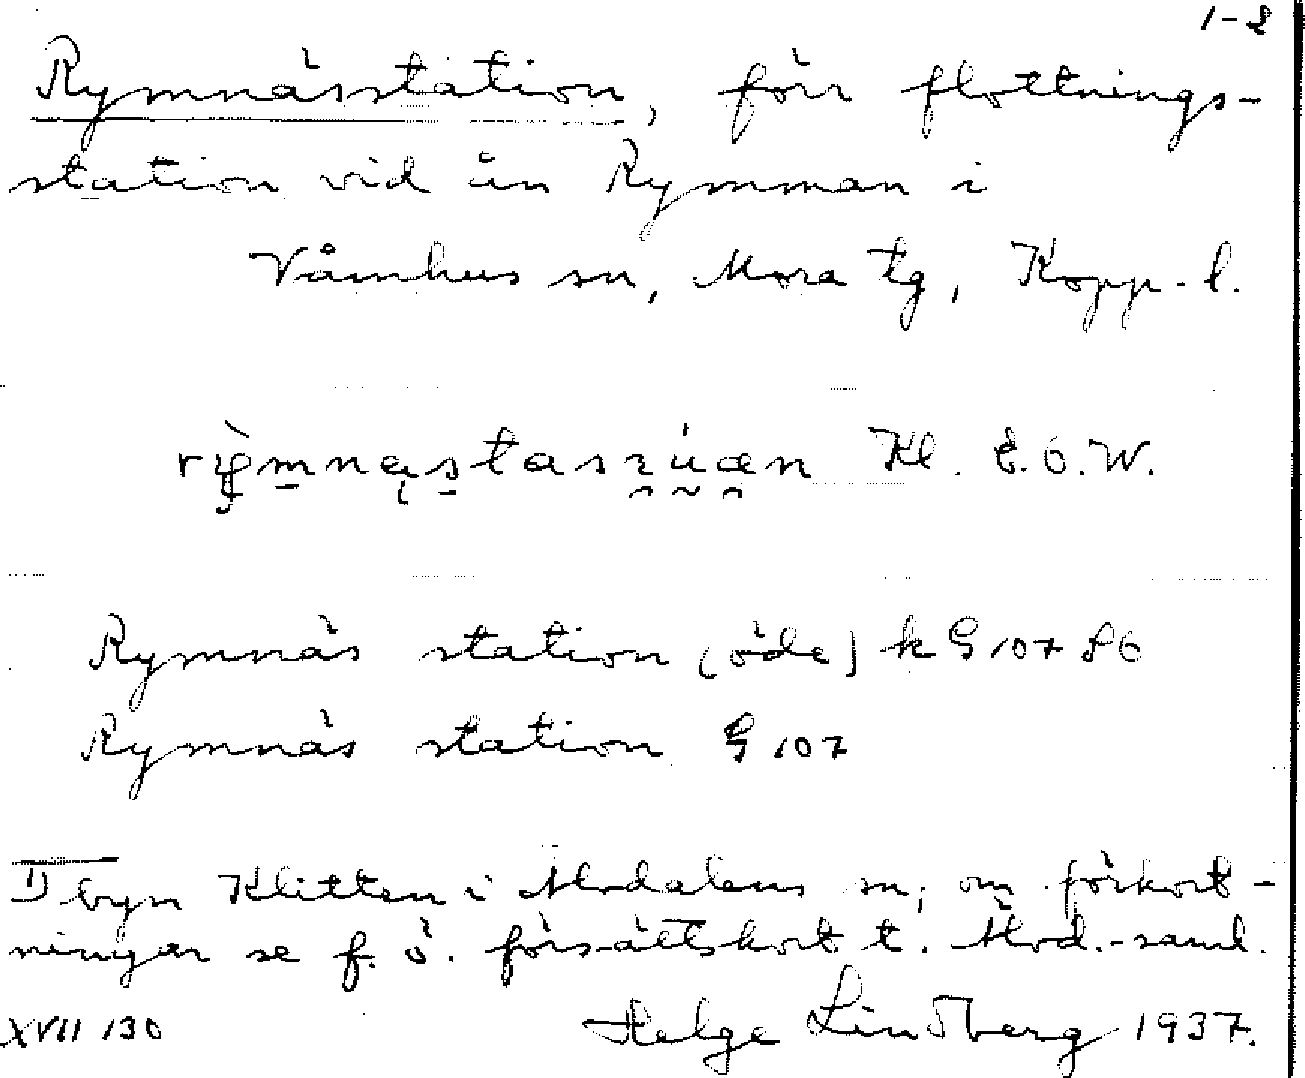 1-2
Rymnässtation, förr flottnings-
station vid ån Rymman i
Våmhus sn, Mora tg, Kopp. l.
Kl. E.O.W.
Rymnäs station (öde) k G 107 S6
Rymnäs station G 107
I byn Klitten i Älvdalens sn; om förkort-
ningar se f. ö. försättskort t. Älvd.-saml.
XVII 130 Helge Lindberg 1937.